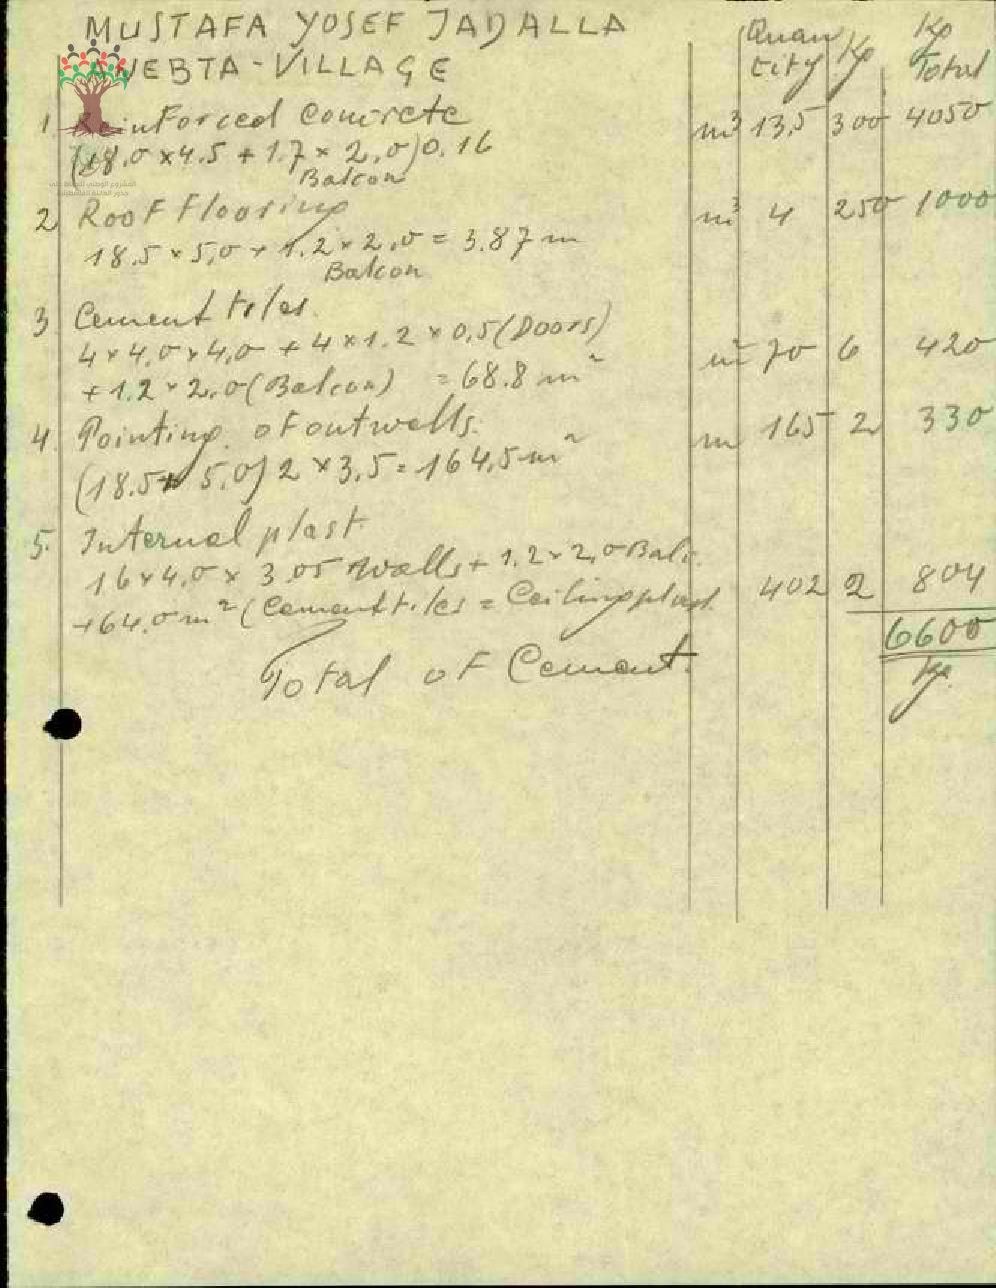 MUSTAFA YOSEF JADALLA
ANEBTA - VILLAGE
Quantity Kg Kg Total
1 Reinforced concrete m³ 13,5 300 4050
(18.0 x 4.5 + 1.7 x 2,0) 0.16
Balcon
2 Roof flooring m³ 4 250 1000
18.5 x 5,0 + 1.2 x 2,0 = 3.87 m
Balcon
3 Cement tiles
4 x 4,0 x 4,0 + 4 x 1.2 x 0,5 (Doors)
+ 1.2 x 2,0 (Balcon) = 68.8 m² m² 70 6 420
4. Pointing of outwalls. m 165 2 330
(18.5 + 5,0) 2 x 3,5 = 164,5 m²
5. Internal plast.
16 x 4,0 x 3.05 walls + 1.2 x 2,0 Balc.
+ 64,0 m² (Cement tiles = Ceiling plast. 402 2 804
6600
Total of Cement. Kg.
المشروع الوطني للحفاظ على
جذور العائلة الفلسطينية